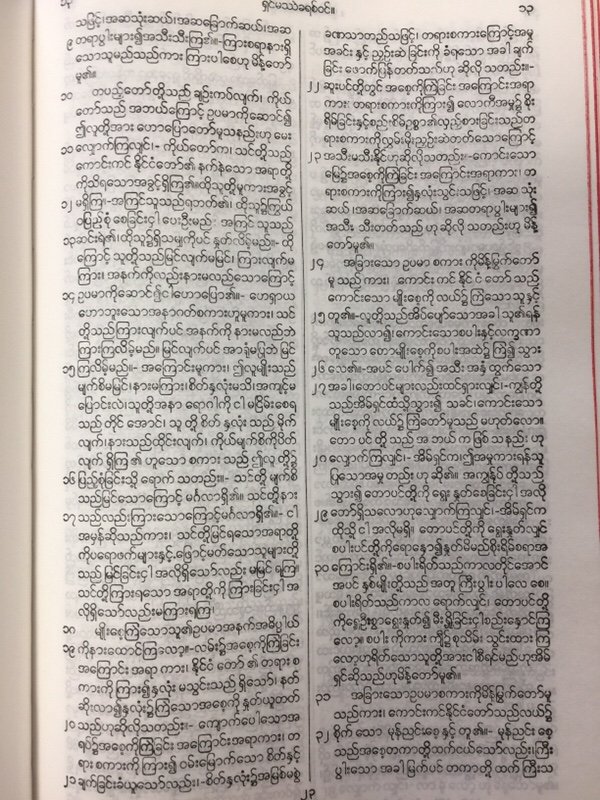 ၁၃
ရှင်မဿဲခရစ်ဝင်။
၁၃
သဖြင့်၊ အဆသုံးဆယ်၊ အဆခြောက်ဆယ်၊ အဆ
၉ တရာပွါးများ၍ အသီးအသီးကြကုန်၏။-ကြားစရာနားရှိ
သောသူမည်သည်ကား ကြားပါစေဟု မိန့်တော်
မူ၏။
၁၀ တပည့်တော်တို့သည် ချဉ်းကပ်လျက်၊ ကိုယ်
တော်သည် အဘယ်ကြောင့် ဥပမာကိုဆောင်၍
ဤလူတို့အား ဟောပြောတော်မူသနည်းဟု မေး
၁၁ လျှောက်ကြလျှင်၊- ကိုယ်တော်က၊ သင်တို့သည်
ကောင်းကင် နိုင်ငံတော်၏ နက်နဲသော အရာတို့
ကိုသိရသောအခွင့်ရှိကြ၏။ ထိုသူတို့မူကားအခွင့်
၁၂ မရှိကြ။-အကြင်သူသည်ရတတ်၏၊ ထိုသူ၌ကြွယ်
ဝပြည့်စုံ စေခြင်းငှါ ပေးဦးမည်။ အကြင် သူသည်
၁၃ ဆင်းရဲ၏၊ ထိုသူ၌ရှိသမျှကိုပင် နှုတ်လိမ့်မည်။-ထို
ကြောင့် ထိုသူတို့သည်မြင်လျက်မမြင်၊ ကြားလျက်မ
ကြား၊ အနက်ကိုလည်းနားမလည်သောကြောင့်
၁၄ ဥပမာကိုဆောင်၍ငါဟောပြော၏။- ဟေရှာယ
ဟောဘူးသောအနာဂတ်စကားဟူမူကား၊ သင်
တို့သည်ကြားလျက်ပင် အနက်ကို နားမလည်ဘဲ
ကြားကြလိမ့်မည်။ မြင်လျက်ပင် အာရုံမပြုဘဲ မြင်
၁၅ ကြလိမ့်မည်။- အကြောင်းမူကား၊ ဤလူမျိုးသည်
မျက်စိမမြင်၊ နားမကြား၊ စိတ်နှလုံးမသိ၊ အကျင့်မ
ပြောင်းလဲ၊ သူတို့အနာ ရောဂါကို ငါ မငြိမ်းစေရ
သည် တိုင် အောင်၊ သူ တို့ စိတ် နှလုံး သည် မိုက်
လျက်၊ နားသည်ထိုင်းလျက်၊ ကိုယ်မျက်စိကိုပိတ်
လျက် ရှိကြ၏ ဟူသော စကား သည် ဤလူ တို့၌
၁၆ ပြည့်စုံခြင်းသို့ ရောက် သတည်း။- သင်တို့ မျက်စိ
သည်မြင်သောကြောင့် မင်္ဂလာရှိ၏။ သင်တို့နား
၁၇ သည်လည်းကြားသောကြောင့်မင်္ဂလာရှိ၏။- ငါ
အမှန်ဆိုသည်ကား၊ သင်တို့မြင်ရသောအရာတို့
ကိုပရောဖက်များနှင့်၊ ဖြောင့်မတ်သောသူများတို့
သည် မြင်ခြင်းငှါ အလိုရှိသော်လည်း မမြင် ရကြ။
သင်တို့ကြားရသော အရာတို့ကို ကြားခြင်းငှါ အ
လိုရှိသော်လည်းမကြားရကြ၊
၁၈ မျိုးစေ့ကြဲသောသူ၏ဥပမာအနက်အဓိပ္ပါယ်
၁၉ ကိုနားထောင်ကြလော့။-လမ်း၌အစေ့ကိုကြဲခြင်း
အကြောင်း အရာ ကား၊ နိုင်ငံ တော် ၏ တရား စ
ကားကို ကြား၍ နှလုံး မသွင်းသည် ရှိသော်၊ နတ်
ဆိုးလာ၍နှလုံး၌ကြဲသောအစေ့ကို နှုတ်ယူတတ်
၂၀ သည်ဟုဆိုလိုသတည်း။- ကျောက်ပေါ်သောအ
ရပ်၌အစေ့ကိုကြဲခြင်း အကြောင်းအရာကား၊ တ
ရား စကားကို ကြား၍ ဝမ်းမြောက်သော စိတ်နှင့်
၂၁ ချက်ခြင်းခံယူသော်လည်း၊-စိတ်နှလုံး၌အမြစ်မစွဲ
ခဏသာတည်သဖြင့်၊ တရားစကားကြောင့်အမှု
အခင်း နှင့် ညှဉ်းဆဲ ခြင်းကို ခံရသော အခါ ချက်
ခြင်း ဖောက်ပြန်တတ်သက်ဟု ဆိုလို သတည်း။-
၂၂ ဆူးပင်တို့တွင် အစေ့ကိုကြဲခြင်း အကြောင်းအရာ
ကား၊ တရားစကားကိုကြား၍ လောကီအမှု၌စိုး
ရိမ်ခြင်းနှင့်စည်းစိမ်ဥစ္စာ၏လှည့်စားခြင်းသည်တ
ရားစကားကိုလွှမ်းမိုးညှဉ်းဆဲတတ်သောကြောင့်
၂၃ အသီးမသီးနိုင်ဟုဆိုလိုသတည်း။-ကောင်းသော
မြေ၌အစေ့ကိုကြဲခြင်း အကြောင်းအရာကား၊ တ
ရားစကားကိုကြား၍နှလုံးသွင်းသဖြင့်၊ အဆ သုံး
ဆယ်၊ အဆခြောက်ဆယ်၊ အဆတရာပွါးများ၍
အသီး သီးတတ်သည် ဟု ဆိုလို သတည်းဟု မိန့်
တော်မူ၏။
၂၄ အခြားသော ဥပမာ စကား ကိုမိန့်မြွက်တော်
မူ သည် ကား၊ ကောင်း ကင် နိုင် ငံ တော် သည်
ကောင်းသော မျိုးစေ့ကို လယ်၌ ကြဲသော သူ နှင့်
၂၅ တူ၏။-လူတို့သည်အိပ်ပျော်သောအခါ သူ၏ရန်
သူသည်လာ၍၊ ကောင်းသောစပါးနှင့်လက္ခဏာ
တူသော တောမျိုးစေ့ကိုစပါးအထဲ၌ ကြဲ၍ သွား
၂၆ လေ၏။-အပင် ပေါက်၍ အသီး အနှံ ထွက်သော
၂၇ အခါ၊ တောပင်များလည်းထင်ရှားလျှင်၊-ကျွန်တို့
သည်အိမ်ရှင်ထံသို့သွား၍ သခင်၊ ကောင်းသော
မျိုးစေ့ကို လယ်၌ ကြဲတော်မူသည် မဟုတ်လော။
တော ပင် တို့ သည် အ ဘယ် က ဖြစ် သနည်း ဟု
၂၈ လျှောက်ကြလျှင်၊-အိမ်ရှင်က၊ ဤအမှုကားရန်သူ
ပြုသောအမှု တည်း ဟု ဆို၏။ အကျွန်ုပ် တို့သည်
သွား၍ တောပင်တို့ကို ရွေး နှုတ်စေခြင်းငှါ အလို
၂၉ တော်ရှိသလောဟုလျှောက်ကြလျှင်၊-အိမ်ရှင်က
ထိုသို့ ငါ အလိုမရှိ။ တောပင်တို့ကို ရွေးနှုတ်လျှင်
စပါးပင်တို့ကိုရောနှော၍နှုတ်မိမည်စိုးရိမ်စရာအ
၃၀ ကြောင်းရှိ၏။-စပါးရိတ်သည်ကာလတိုင်အောင်
အပင် နှစ်မျိုးတို့သည် အတူ ကြီးပွါး ပါလေ စေ။
စပါးရိတ်သည်ကာလ ရောက်လျှင်၊ တောပင်တို့
ကိုရှေ့ဦးစွာရွေးနှုတ်၍ မီးရှို့ခြင်းငှါစည်းနှောင်ကြ
လော့။ စပါး ကိုကား ကျီ၌ စုသိမ်း သွင်းထား ကြ
လော့ဟုရိတ်သောသူတို့အားငါစီရင်မည်ဟုအိမ်
ရှင်ဆိုသည်ဟုမိန့်တော်မူ၏။
၃၁ အခြားသောဥပမာစကားကိုမိန့်မြွက်တော်မူ
သည်ကား၊ ကောင်းကင်နိုင်ငံတော်သည်လယ်၌
၃၂ စိုက် သော မုန်ညှင်းစေ့ နှင့် တူ ၏။- မုန်ညှင်း စေ့
သည်အစေ့တကာတို့ထက်ငယ်သော်လည်း၊ ကြီး
ပွါးသော အခါ မြက်ပင် တကာတို့ ထက် ကြီးသ
၂၃